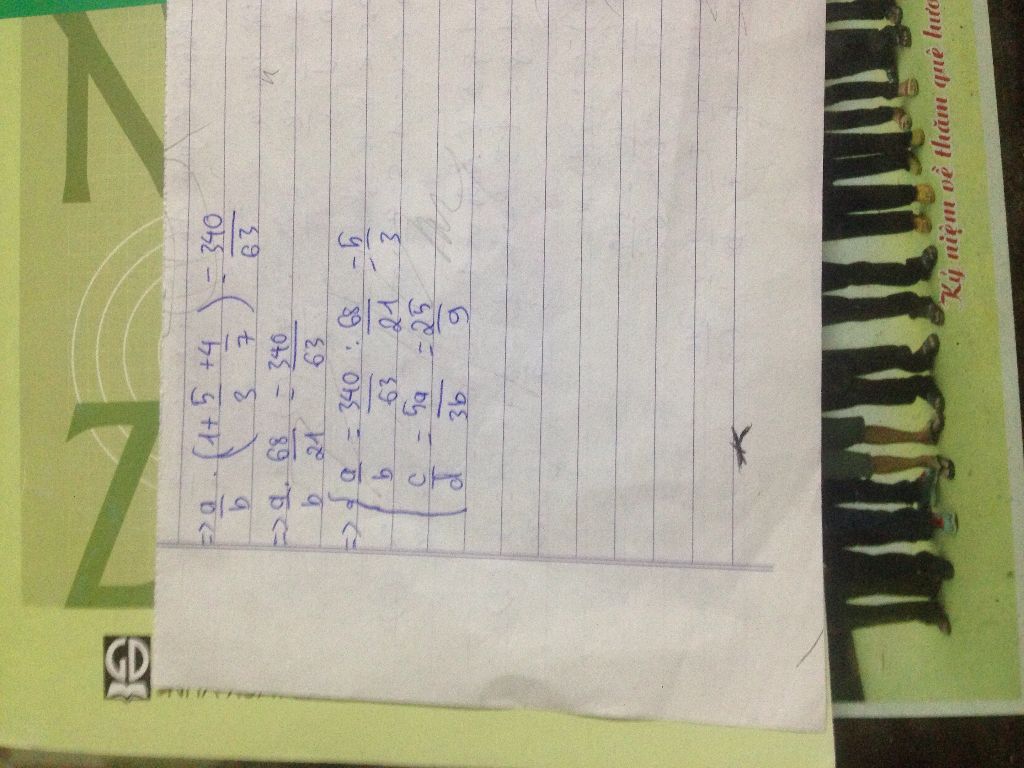 => a/b . (1 + 5/3 + 4/7) = 340/63
=> a/b . 68/21 = 340/63
=> { a/b = 340/63 : 68/21 = 5/3
c/d = 5a/3b = 25/9
Kỷ niệm về thăm quê hươ
GD
N
Z